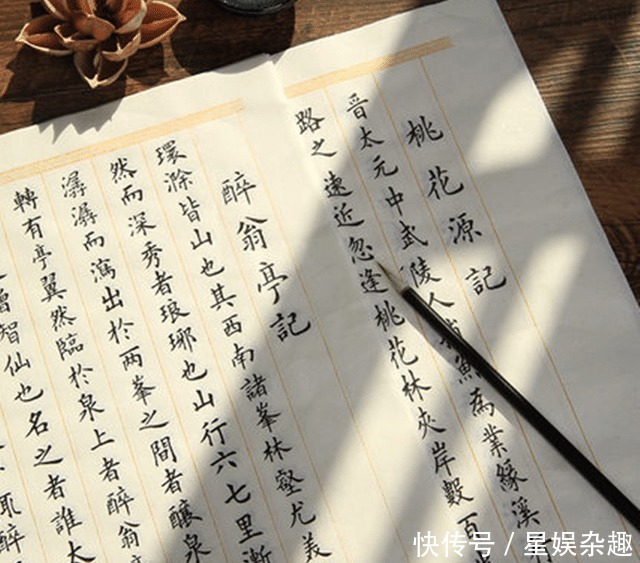 桃花源記
晉太元中武陵人捕魚為業緣溪行
路之遠近忽逢桃花林夾岸數百
醉翁亭記
環滁皆山也其西南諸峯林壑尤美
然而深秀者琅琊也山行六七里漸
潺潺而瀉出於兩峯之間者釀泉
轉有亭翼然臨於泉上者醉翁
僧智仙也名之者誰太
醉
快传号/星娱杂趣